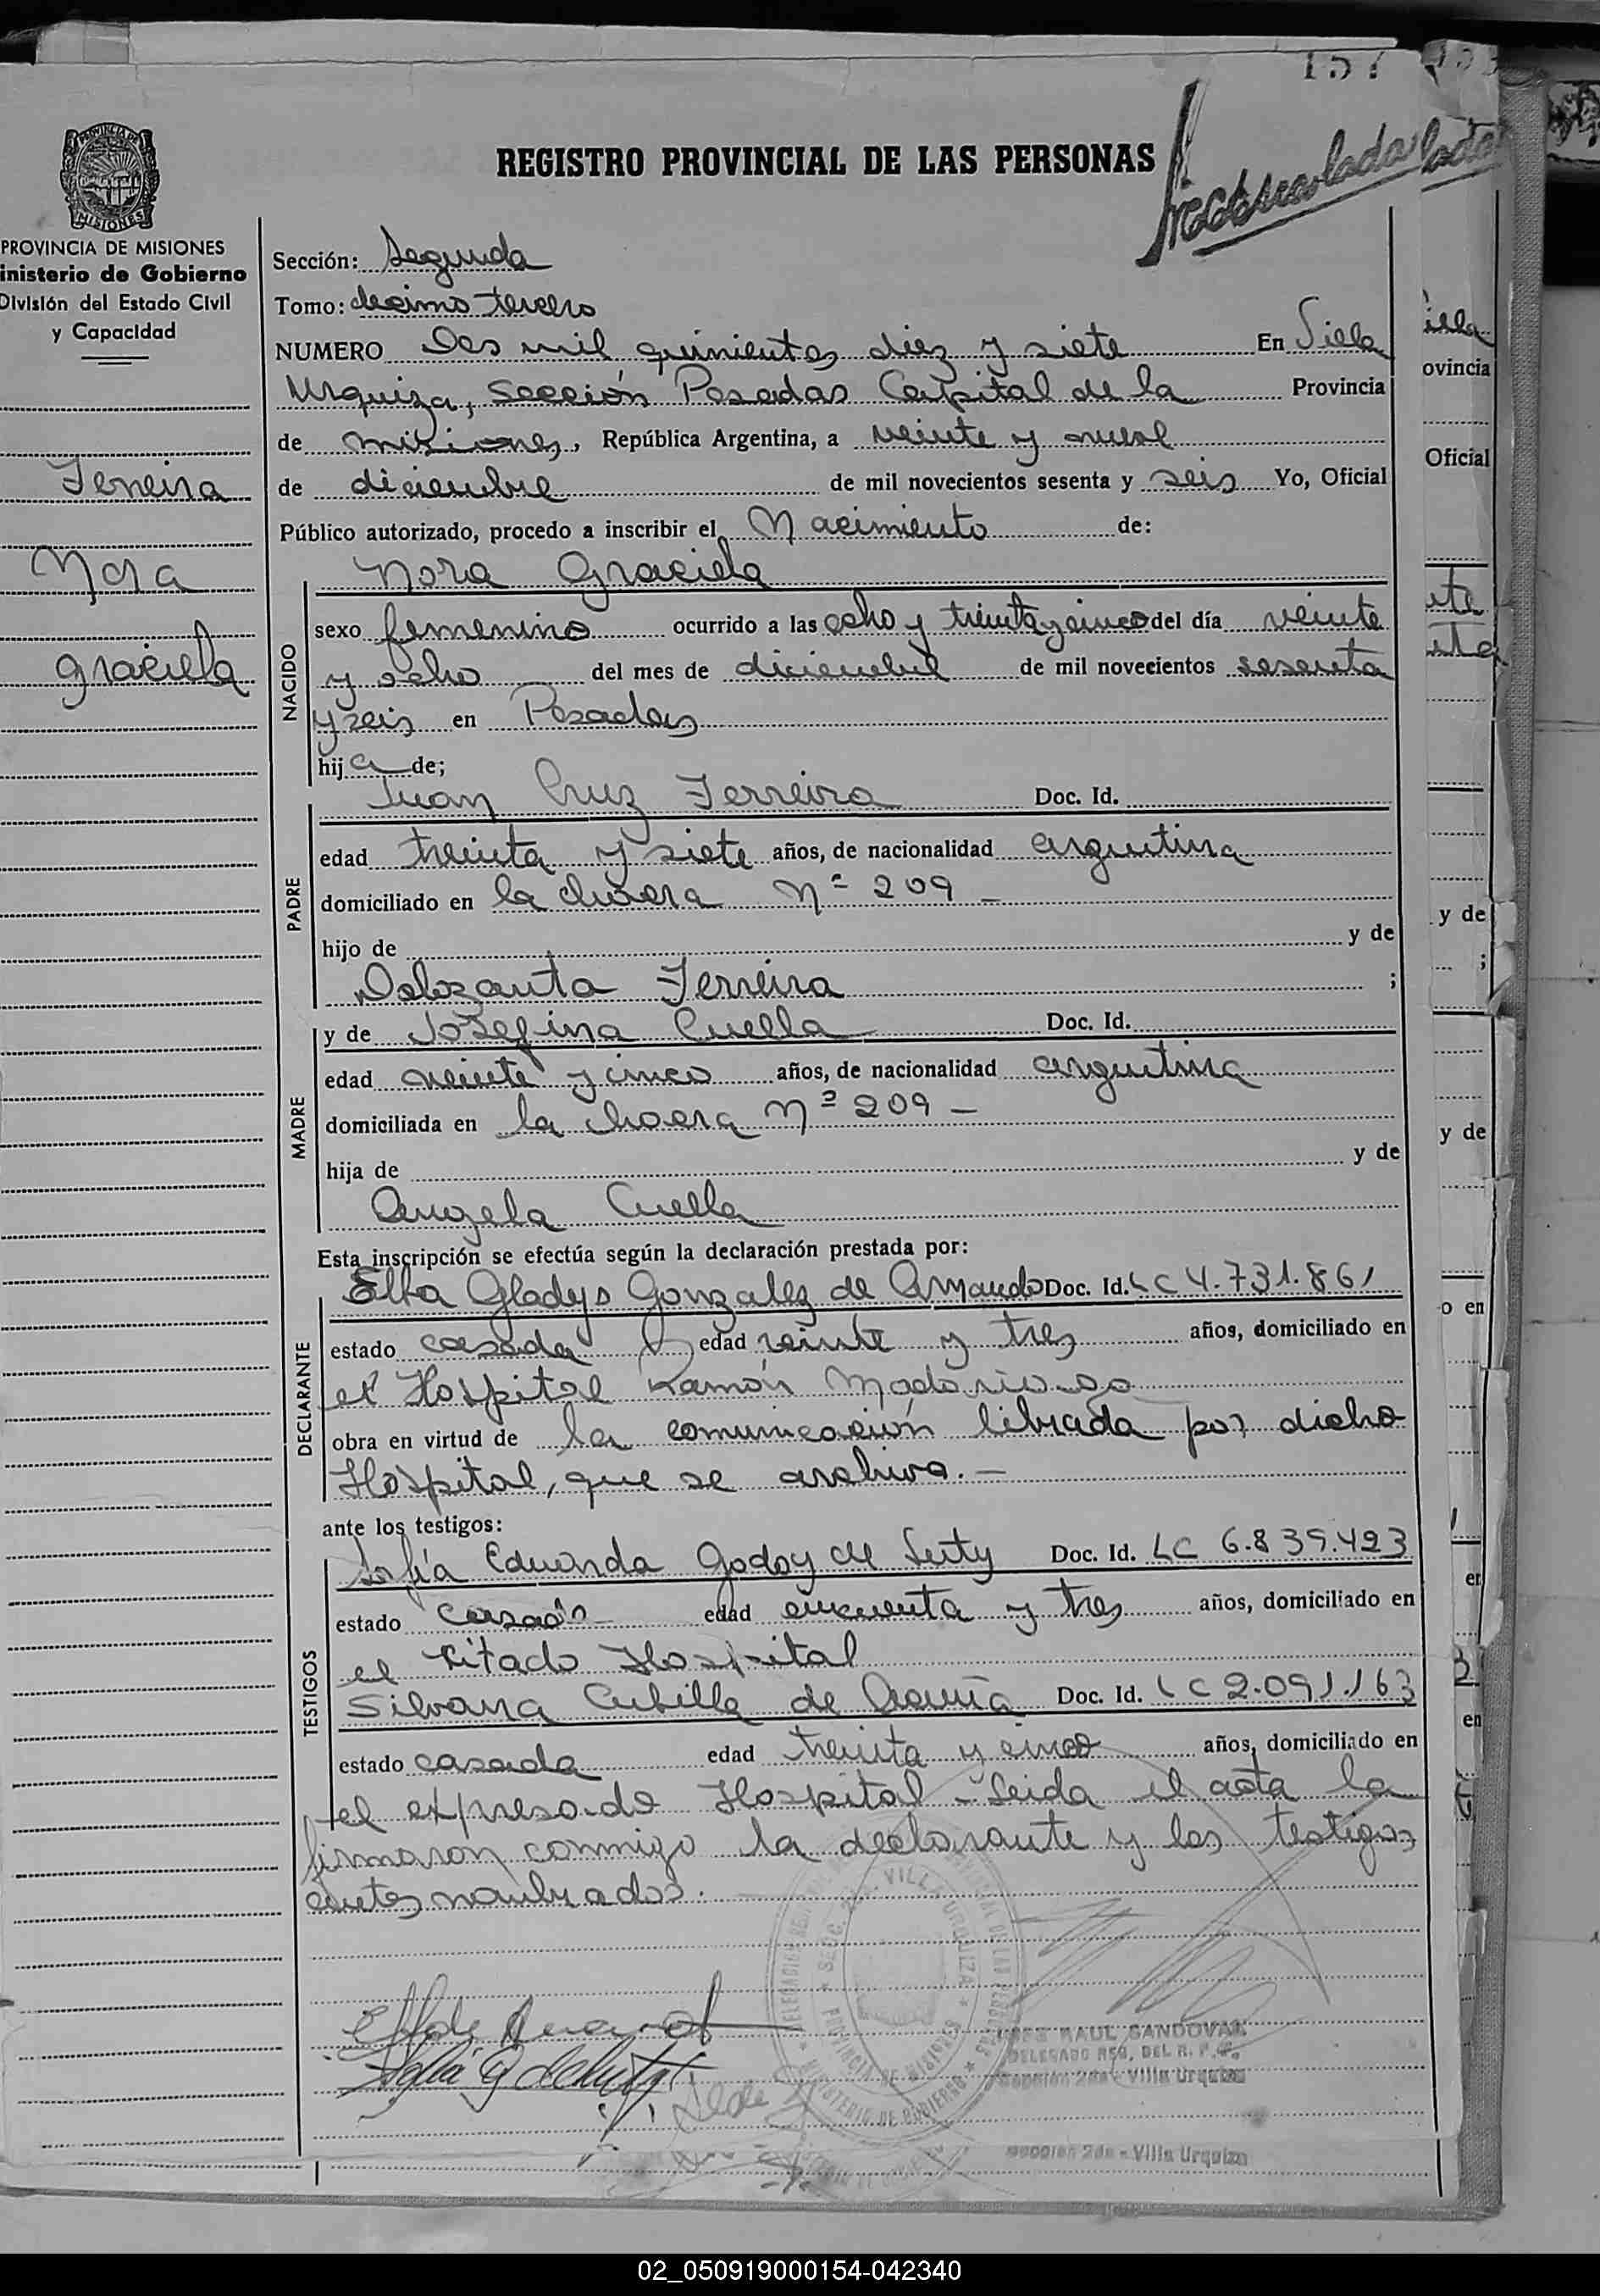 157
REGISTRO PROVINCIAL DE LAS PERSONAS
PROVINCIA DE
MISIONES
PROVINCIA DE MISIONES
inisterio de Gobierno
División del Estado Civil
y Capacidad
Ferreira
Nora
Graciela
Sección: Segunda
Tomo: decimo tercero
NUMERO Dos mil quinientos diez y siete En Villa
Urquiza, Sección Posadas Capital de la Provincia
de Misiones, República Argentina, a veinte y nueve
de diciembre de mil novecientos sesenta y seis Yo, Oficial
Público autorizado, procedo a inscribir el Nacimiento de:
Nora Graciela
NACIDO
sexo femenino ocurrido a las ocho y treinta y cinco del día veinte
y ocho del mes de diciembre de mil novecientos sesenta
y seis en Posadas
hija de;
Juan Cruz Ferreira Doc. Id.
PADRE
edad treinta y siete años, de nacionalidad argentina
domiciliado en la chacra Nº 209 -
hijo de y de
Ferreira ;
y de Josefina Cuella Doc. Id.
MADRE
edad veinte y cinco años, de nacionalidad argentina
domiciliada en la chacra Nº 209 -
hija de y de
Angela Cuella
Esta inscripción se efectúa según la declaración prestada por:
Elba Gladys Gonzalez de Doc. Id. LC 4.731.861
DECLARANTE
estado casada edad veinte y tres años, domiciliado en
el Hospital Ramón Madariaga
obra en virtud de la comunicación librada por dicho
Hospital, que se archiva. -
ante los testigos:
Sofía Eduarda Godoy de Doc. Id. LC 6.839.423
TESTIGOS
estado casada edad cincuenta y tres años, domiciliado en
el citado Hospital
Silvana Cubilla de Acuña Doc. Id. LC 2.091.163
estado casada edad treinta y cinco años, domiciliado en
el expresado Hospital - Leida el acta la
firmaron conmigo la declarante y los testigos
antes nombrados.
JOSE RAUL SANDOVAL
DELEGADO REG. DEL R. P. P.
Sección 2da - Villa Urquiza
Sección 2da - Villa Urquiza
illa
ovincia
Oficial
y de
;
y de
o en
en
en
02_050919000154-042340